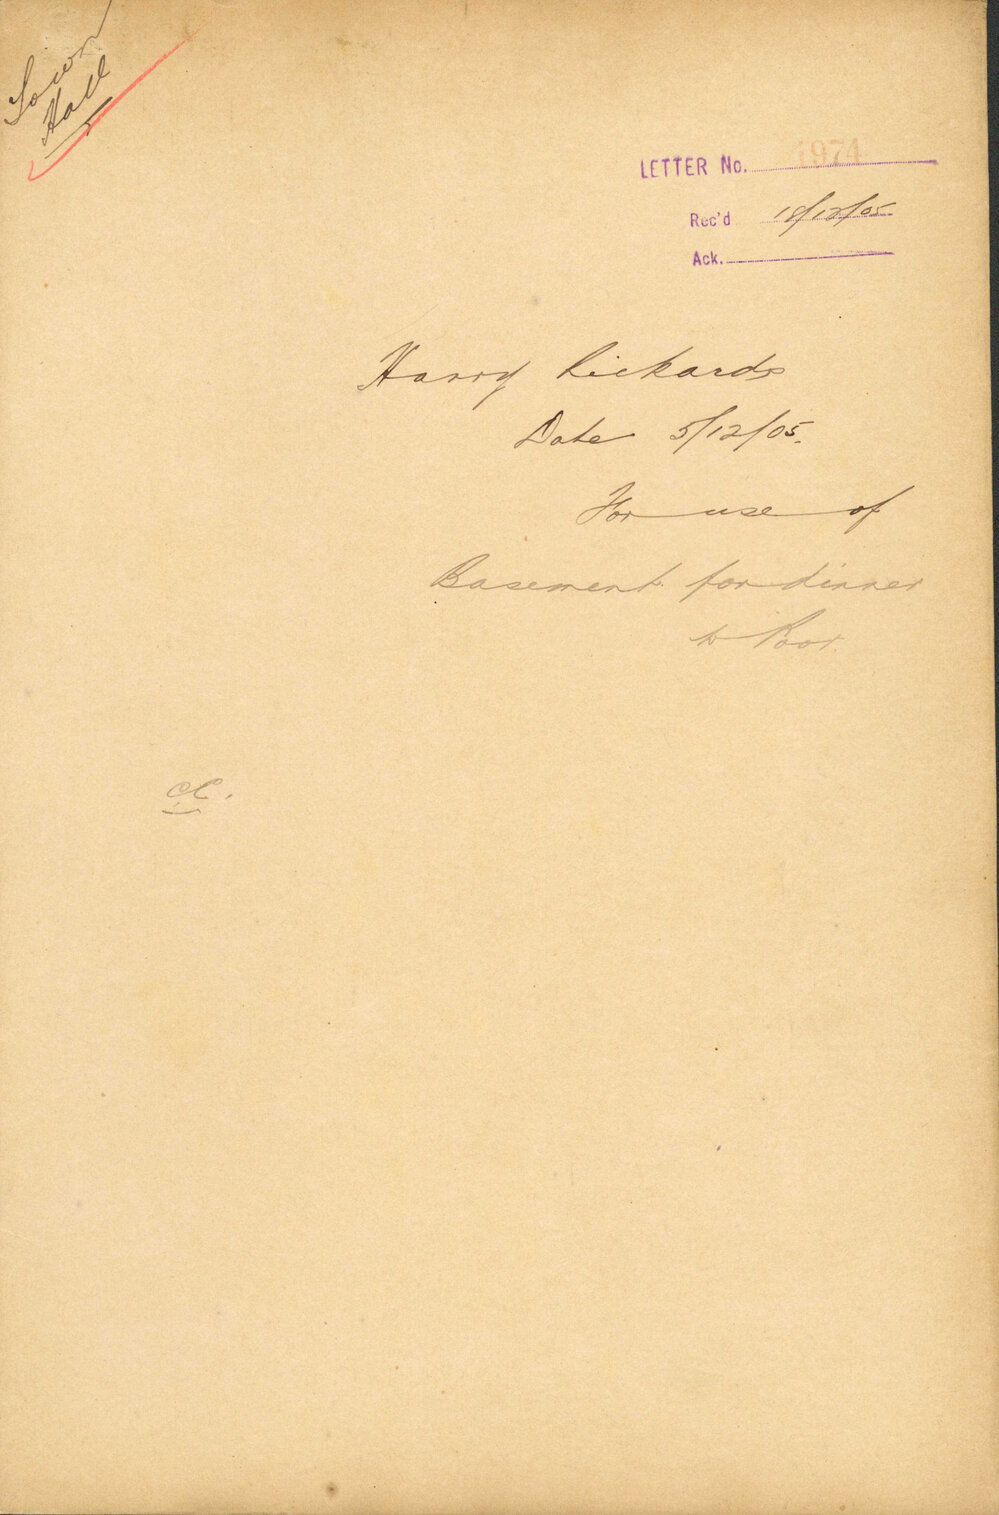 Town
Hall
LETTER No. 1974
Rec'd 18/12/05
Ack.
Harry Rickards
Date 5/12/05.
For use of
Basement for dinner
to Poor.